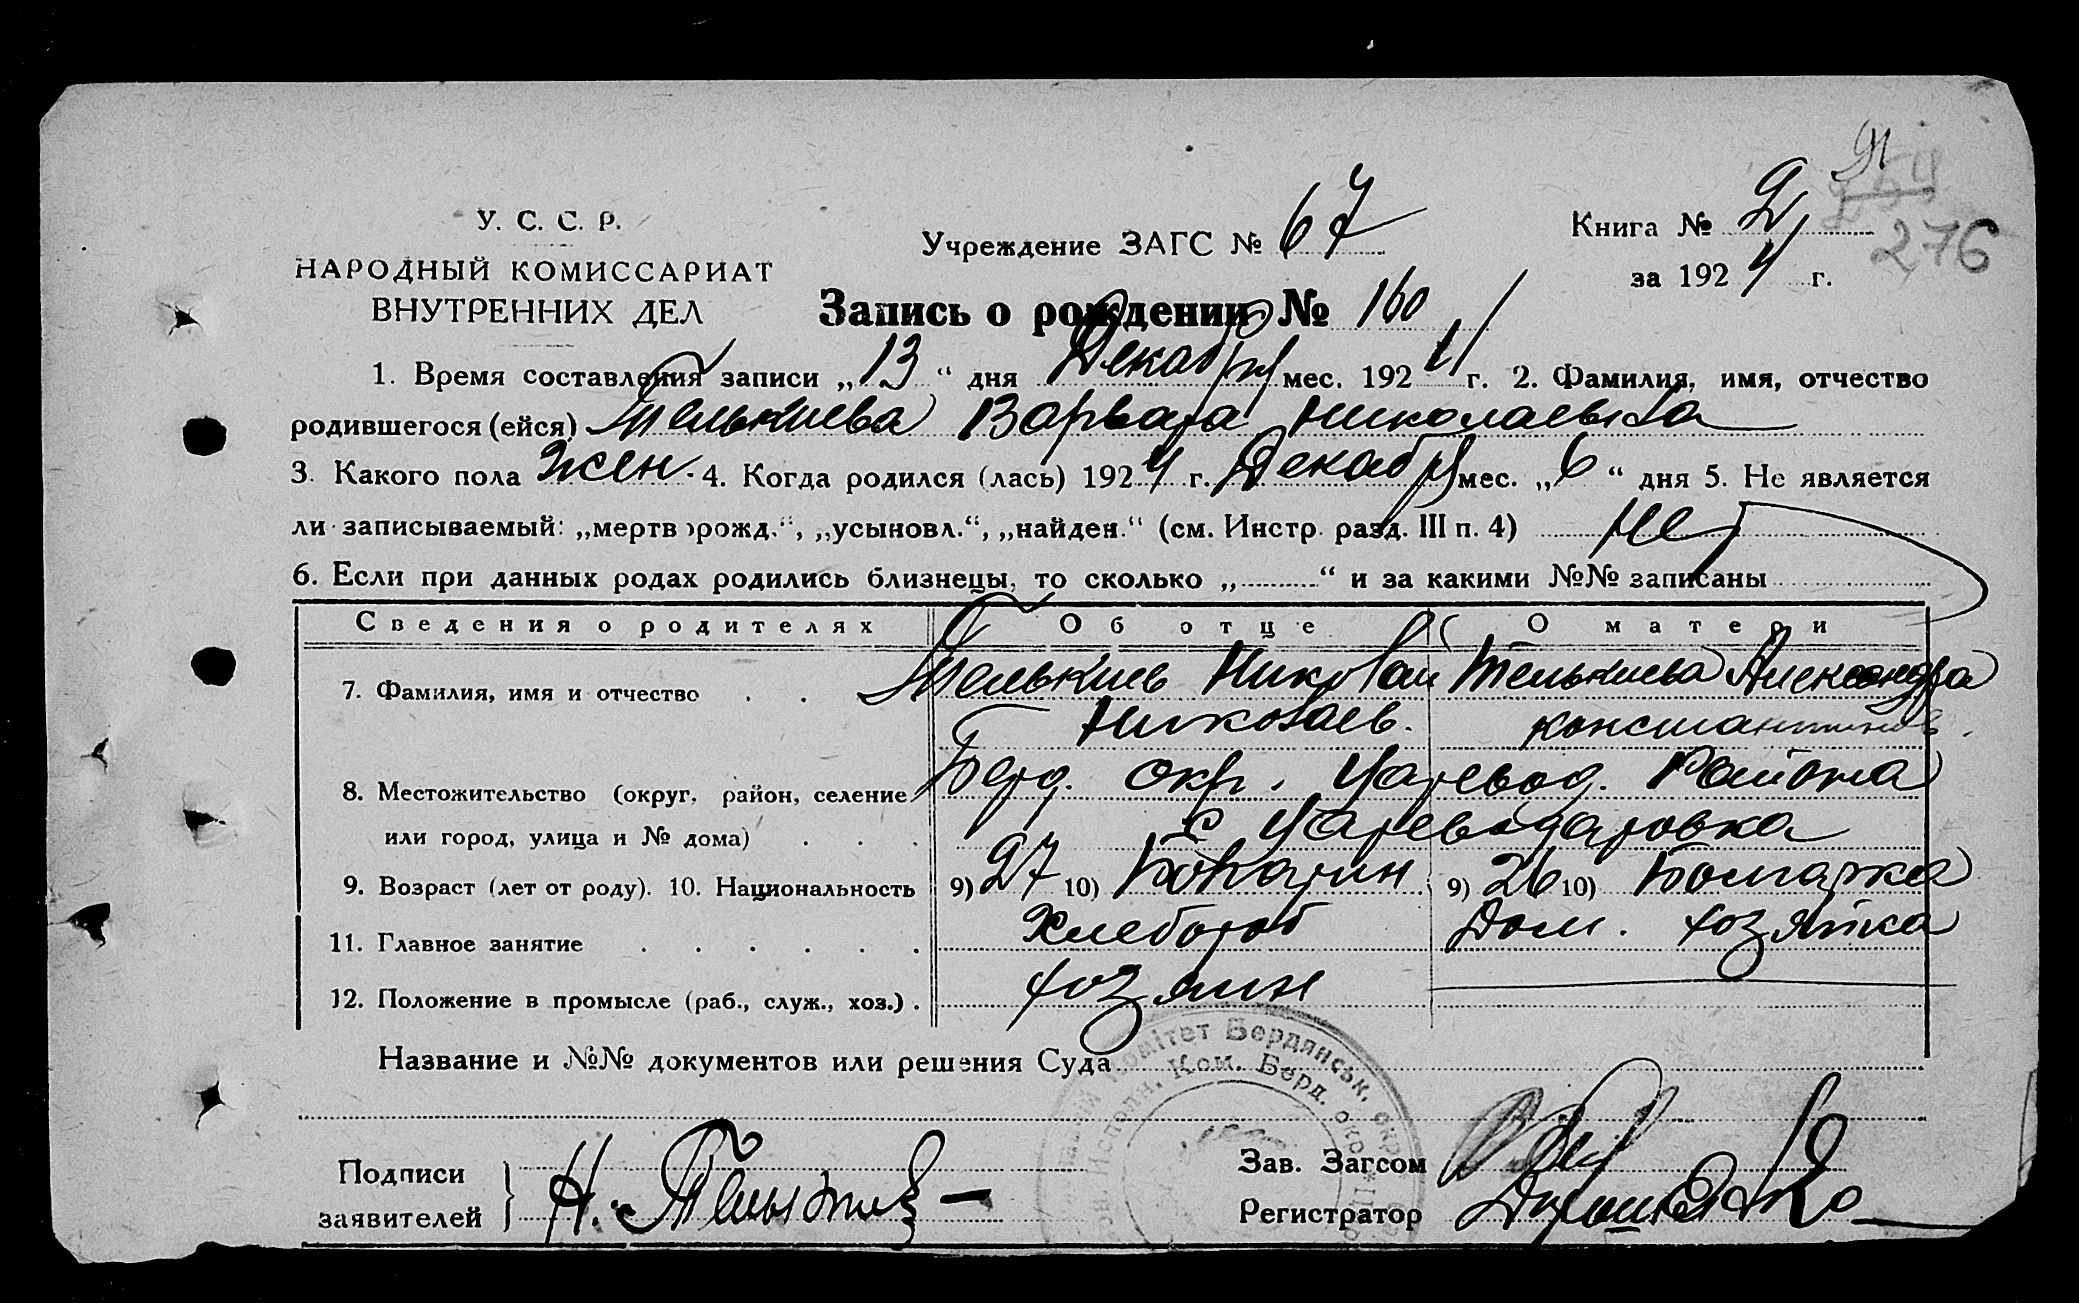 У. С. С. Р.
НАРОДНЫЙ КОМИССАРИАТ
ВНУТРЕННИХ ДЕЛ
Учреждение ЗАГС № 67
Книга № 2
91
276
за 1924 г.
Запись о рождении № 160
1. Время составления записи „13“ дня Декабря мес. 1924 г. 2. Фамилия, имя, отчество
родившегося (ейся) Телькиева Варвара Николаевна
3. Какого пола жен. 4. Когда родился (лась) 1924 г. Декабря мес. „6“ дня 5. Не является
ли записываемый: „мертворожд.“, „усыновл.“, „найден.“ (см. Инстр. разд. III п. 4) нет
6. Если при данных родах родились близнецы, то сколько „..........“ и за какими №№ записаны
Сведения о родителях Об отце О матери
7. Фамилия, имя и отчество . . Телькиев Николай Телькиева Александра
Николаев. Константинов.
8. Местожительство (округ, район, селение Берд. окр. Царевод. Района
или город, улица и № дома) . . . с Цареводаровка
9. Возраст (лет от роду). 10. Национальность 9) 27 10) Болгарин 9) 26 10) Болгарка
11. Главное занятие . . . . . . Хлебороб Дом. хозяйка
12. Положение в промысле (раб., служ., хоз.) . хозяин
Название и №№ документов или решения Суда
Комітет Бердянськ. окр.
Исполн. Ком. Берд. окр.
Подписи
заявителей } Н. Телькиев
Зав. Загсом
Регистратор